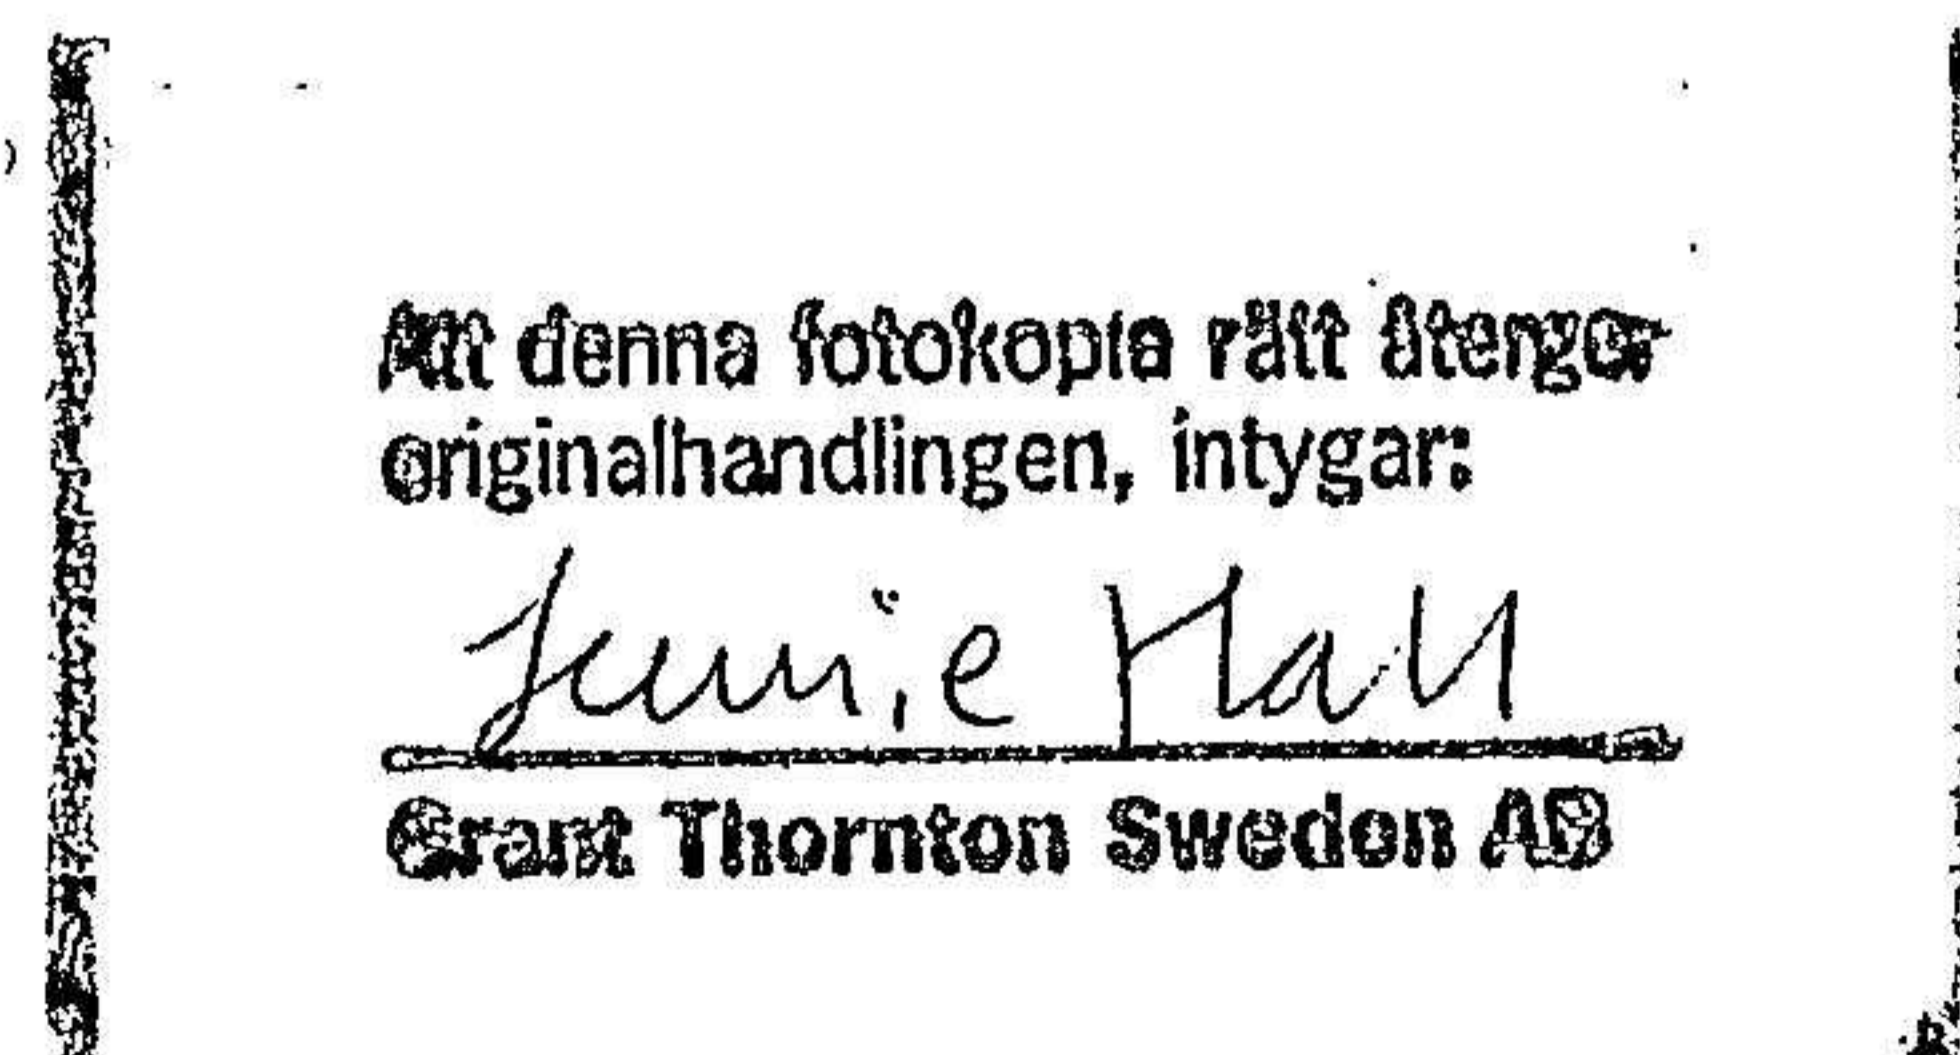 Att denna fotokopia rätt återger
originalhandlingen, intygar:
Jennie Hall
Grant Thornton Sweden AB